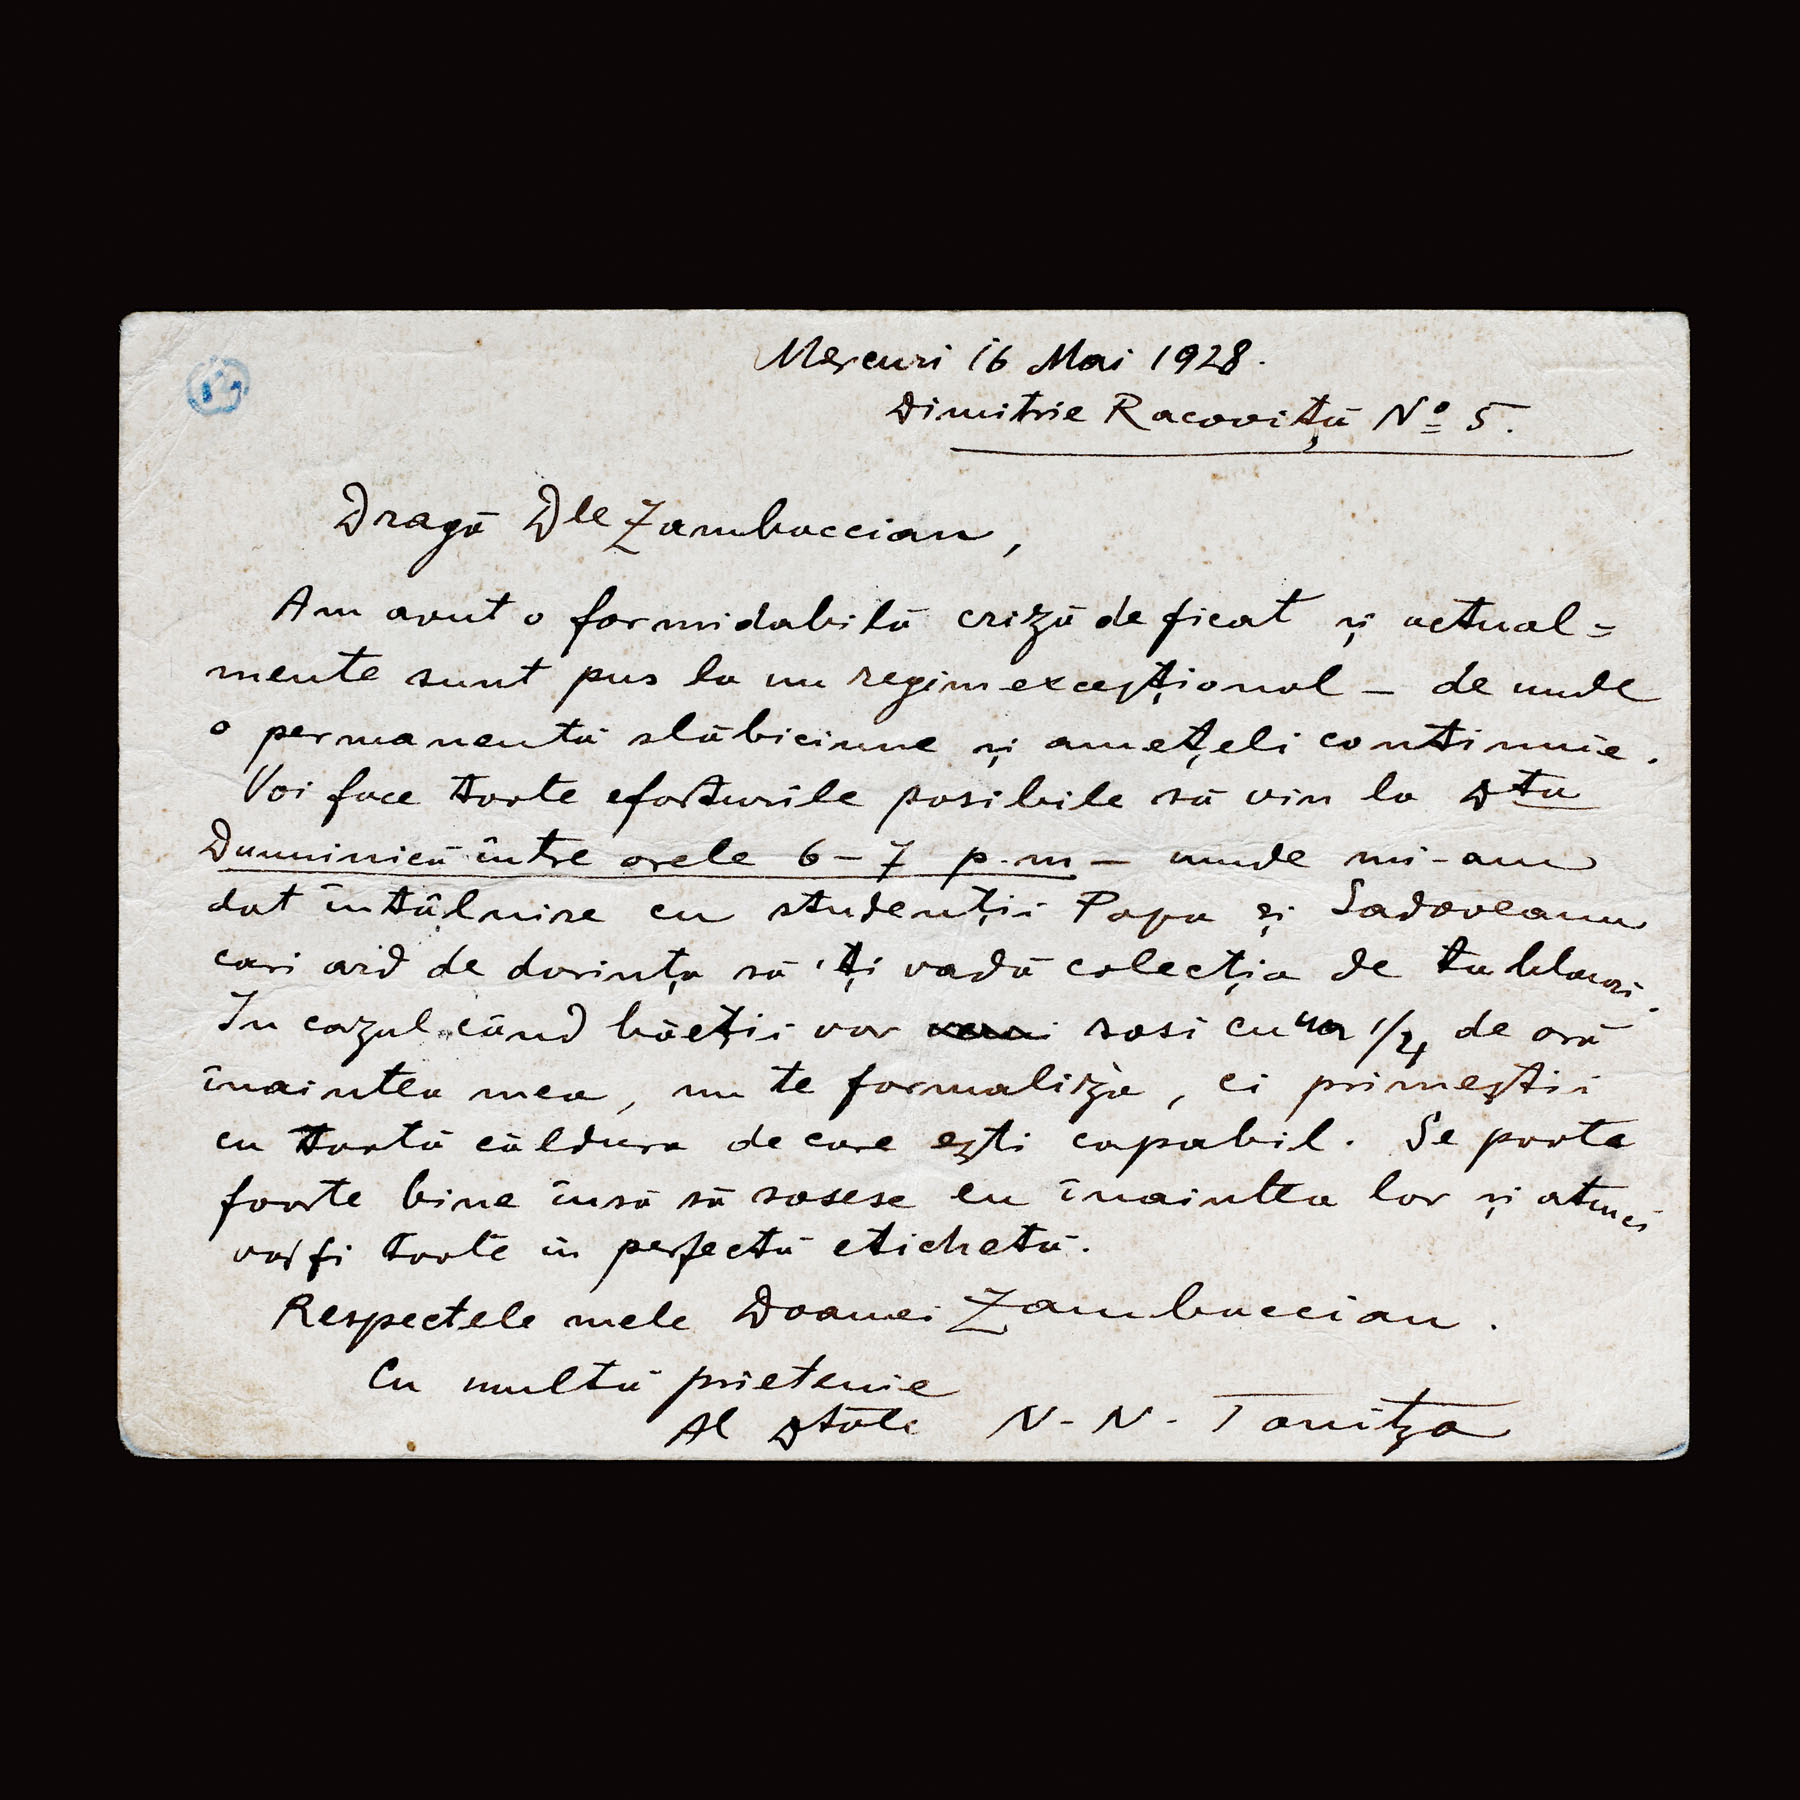 Mercuri 16 Mai 1928.
Dimitrie Racoviță Nº 5.
Dragă Dle Zambaccian,
Am avut o formidabilă criză de ficat și actual=
mente sunt pus la un regim excepțional – de unde
o permanentă slăbiciune și amețeli continuie.
Voi face toate eforturile posibile să vin la Dta
Duminică între orele 6–7 p.m – unde mi-am
dat întâlnire cu studenții Papa și Sadoveanu
cari ard de dorința să 'ți vadă colecția de tablouri.
In cazul când băeții vor sosi cu un 1/4 de oră
înaintea mea, nu te formaliza, ci primeștii
cu toată căldura de care ești capabil. Se poate
foarte bine însă să sosesc eu înaintea lor și atunci
vor fi toate în perfectă etichetă.
Respectele mele Doamnei Zambaccian.
Cu multă prietenie
Al Dtale N-N-Tonitza